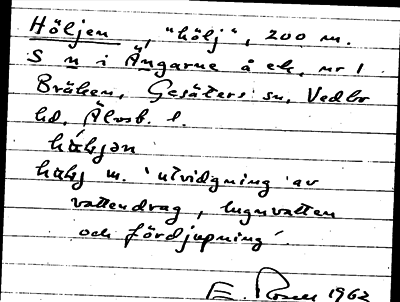 Höljen, "hölj", 200 m.
S n i Ängarne å ek. nr 1
Bräken, Gesäters sn, Vedbo
hd, Älvsb. l.
hölj m. 'utvidgning av
vattendrag, lugnvatten
och fördjupning'
E. 1962